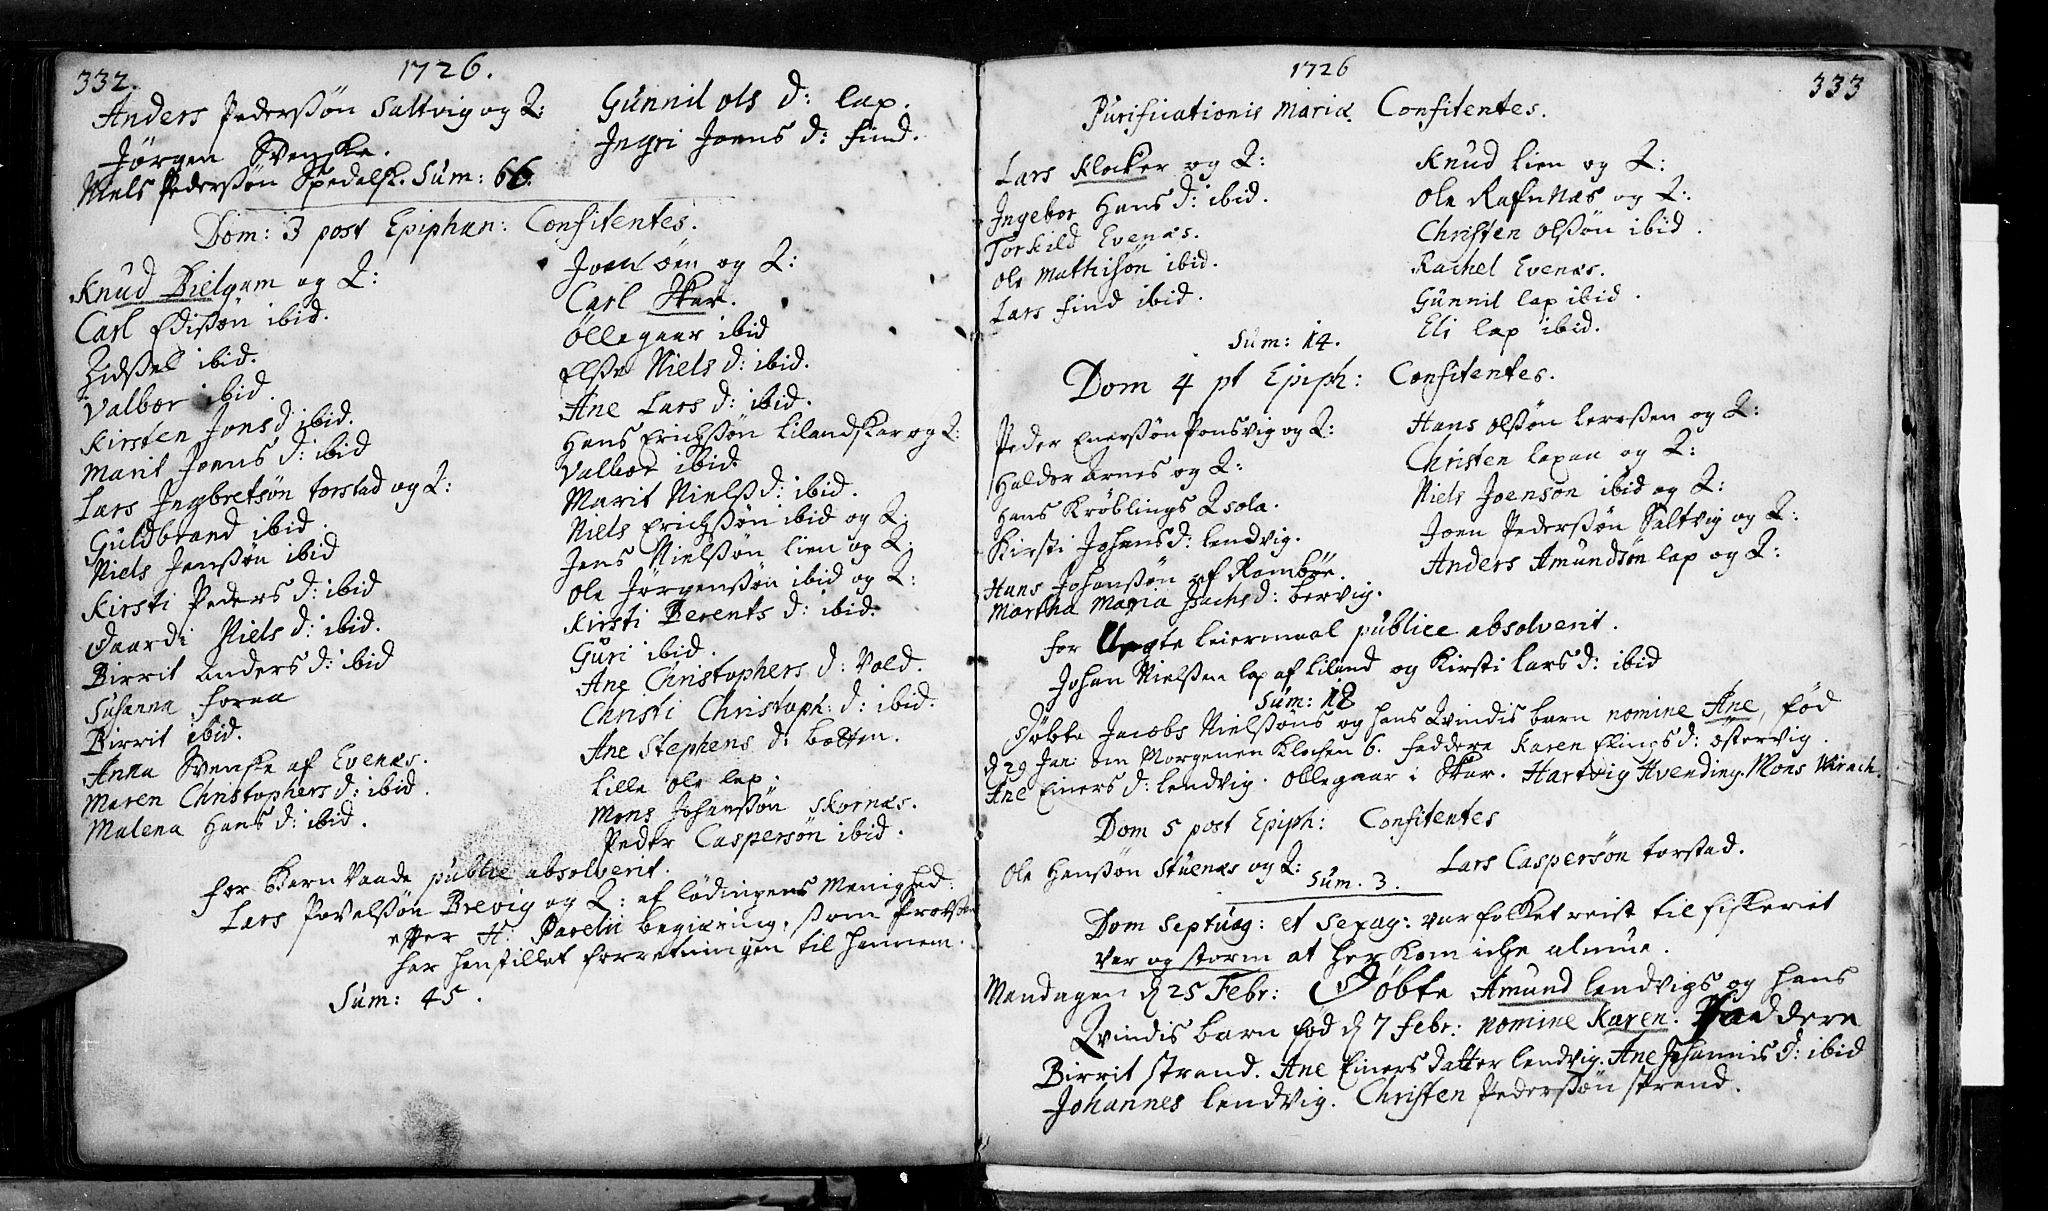 332.
1726.
Anders Pederßøn Saltvig og Q:
Jørgen Svenske.
Niels Pederßøn Spedalsk. Sum: 66.
Gunnil ols d: lap.
Ingri Joens d: find.
Dom: 3 post Epiphan: Confitentes.
Knud Bielgam og Q:
Carl Edisøn ibid.
Zidßel ibid.
Valbor ibid.
Kirsten Jons d ibid.
Marit Joens d: ibid
Lars Ingbretsøn torstad og Q:
Guldbrand ibid.
Niels Jenßøn ibid
Kirsti Peders d: ibid
Gaardi Niels d: ibid.
Birrit Anders d: ibid
Susanna foraa
Birrit ibid.
Anna Svenske af Evenæs.
Maren Christophers d: ibid.
Malena Hans d: ibid.
Joen øen og Q:
Carl Skar.
Øllegaar ibid
Elsße Niels d: ibid.
Ane Lars d: ibid.
Hans Erichßøn Lilandskar og Q:
Valbor ibid
Marit Nielß d: ibid.
Niels Erichßøn ibid og Q:
Jens Nielßøn lien og Q:
Ole Jørgenßøn ibid og Q:
Kirsti Berents d: ibid.
Guri ibid.
Ane Christophers d: Vold.
Christi Christoph: d: ibid.
Ane Stephens d: botten.
Lille ole lap.
Mons Johanßøn Skornæs.
Peder Caspersøn ibid.
for Barn Vaade publice absolverit.
Lars Povelßøn Brevig og Q: af lødingens Menighed:
efter H: Parelii begiæring, som Provsten
har henstillet forretningen til hannem.
Sum: 45.
1726
333
Purificationis Mariæ. Confitentes.
Lars Klocker og Q:
Ingebor Hans d: ibid.
Torkild Evenæs.
Ole Mathisøn ibid.
Lars find ibid.
Knud lien og Q:
Ole Rafnnæs og Q:
Christen olßøn ibid.
Rachel Evenæs.
Gunnil lap ibid.
Eli lap ibid.
Sum: 14.
Dom 4 pt Epiph: Confitentes.
Peder Enerßøn Ponsvig og Q:
Haldor Arnes og Q:
Hans Krøblings Q sola.
Kirsti Johans d: lendvig.
Hans Johanßøn af Ramboe.
Martha Maria Isachs d: bervig.
Hans olßøn lerreßen og Q:
Christen lapaa og Q:
Niels Joensøn ibid og Q:
Joen Pederßøn Saltvig og Q:
Anders Amundsøn lap og Q:
for Uegte leiermaal publice absolverit.
Johan Nielßen lap af Liland og Kirsti Lars d: ibid
Sum: 18
Døbte Jacobs Nielßøns og hans Qvindis barn nomine Ane, fød
d 29 Jan: om Morgenen Klochen 6. faddere Karen Elings d: østervig.
Ane Einers d: lendvig. Ollegaar i Skar. Hartvig Hvending. Mons Wirach.
Dom 5 post Epiph: Confitentes
Ole Hanßøn Stuenæs og Q:
Lars Caspersøn torstad.
Sum. 3.
Dom Septuag: et Sexag: var folket reist til fiskeriet
Var og storm at her kom iche almue.
Mandagen d 25 Febr: Døbte Amund lendvigs og hans
Qvindis barn fød d 7 febr: nomine Karen. Faddere
Birrit strand. Ane Einers datter lendvig. Ane Johannis d: ibid
Johannes lendvig. Christen Pederßøn strand.